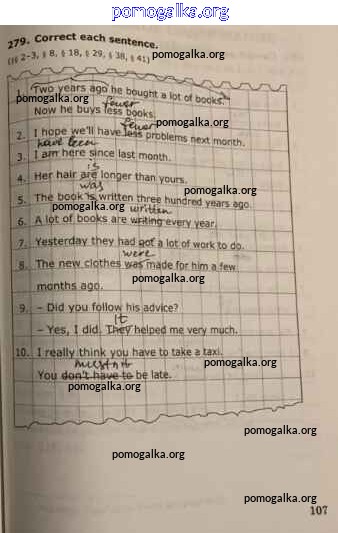 pomogalka.org
279. Correct each sentence.
(§§ 2-3, § 8, § 18, § 29, § 38, § 41)
pomogalka.org
1. Two years ago he bought a lot of books.
pomogalka.org fewer
Now he buys less books.
fewer pomogalka.org
2. I hope we'll have less problems next month.
have been
3. I am here since last month.
is
4. Her hair are longer than yours.
was pomogalka.org
5. The book is written three hundred years ago.
pomogalka.org written
6. A lot of books are writing every year.
7. Yesterday they had got a lot of work to do.
were
8. The new clothes was made for him a few
pomogalka.org
months ago.
9. – Did you follow his advice?
It
– Yes, I did. They helped me very much.
10. I really think you have to take a taxi.
mustn't pomogalka.org
You don't have to be late.
pomogalka.org
pomogalka.org
pomogalka.org
pomogalka.org
107